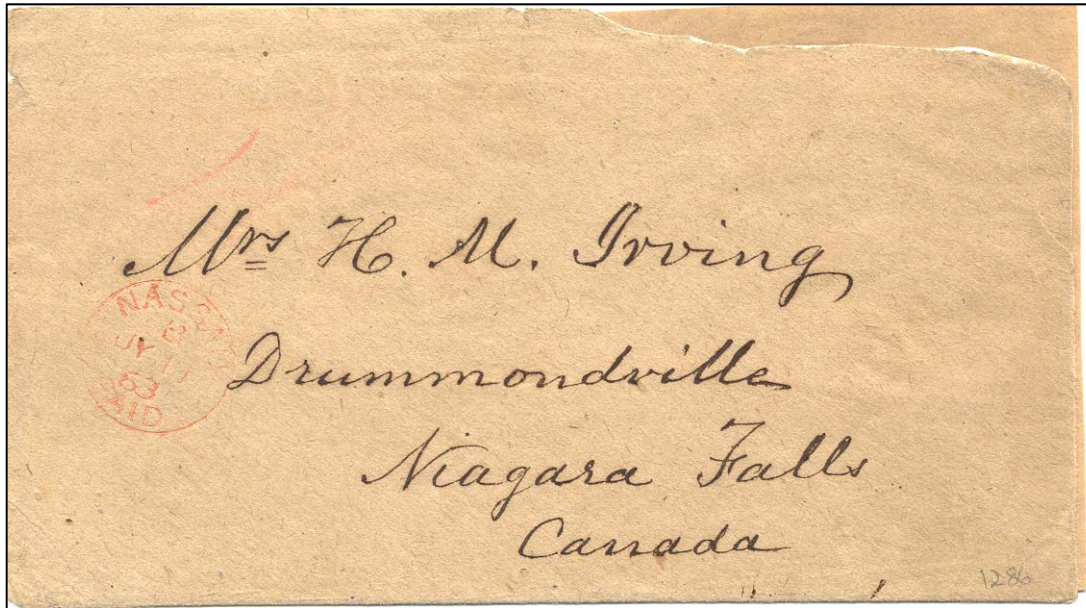 Mrs H. M. Irving
NASSAU
63
PAID
Drummondville
Niagara Falls
Canada
1286